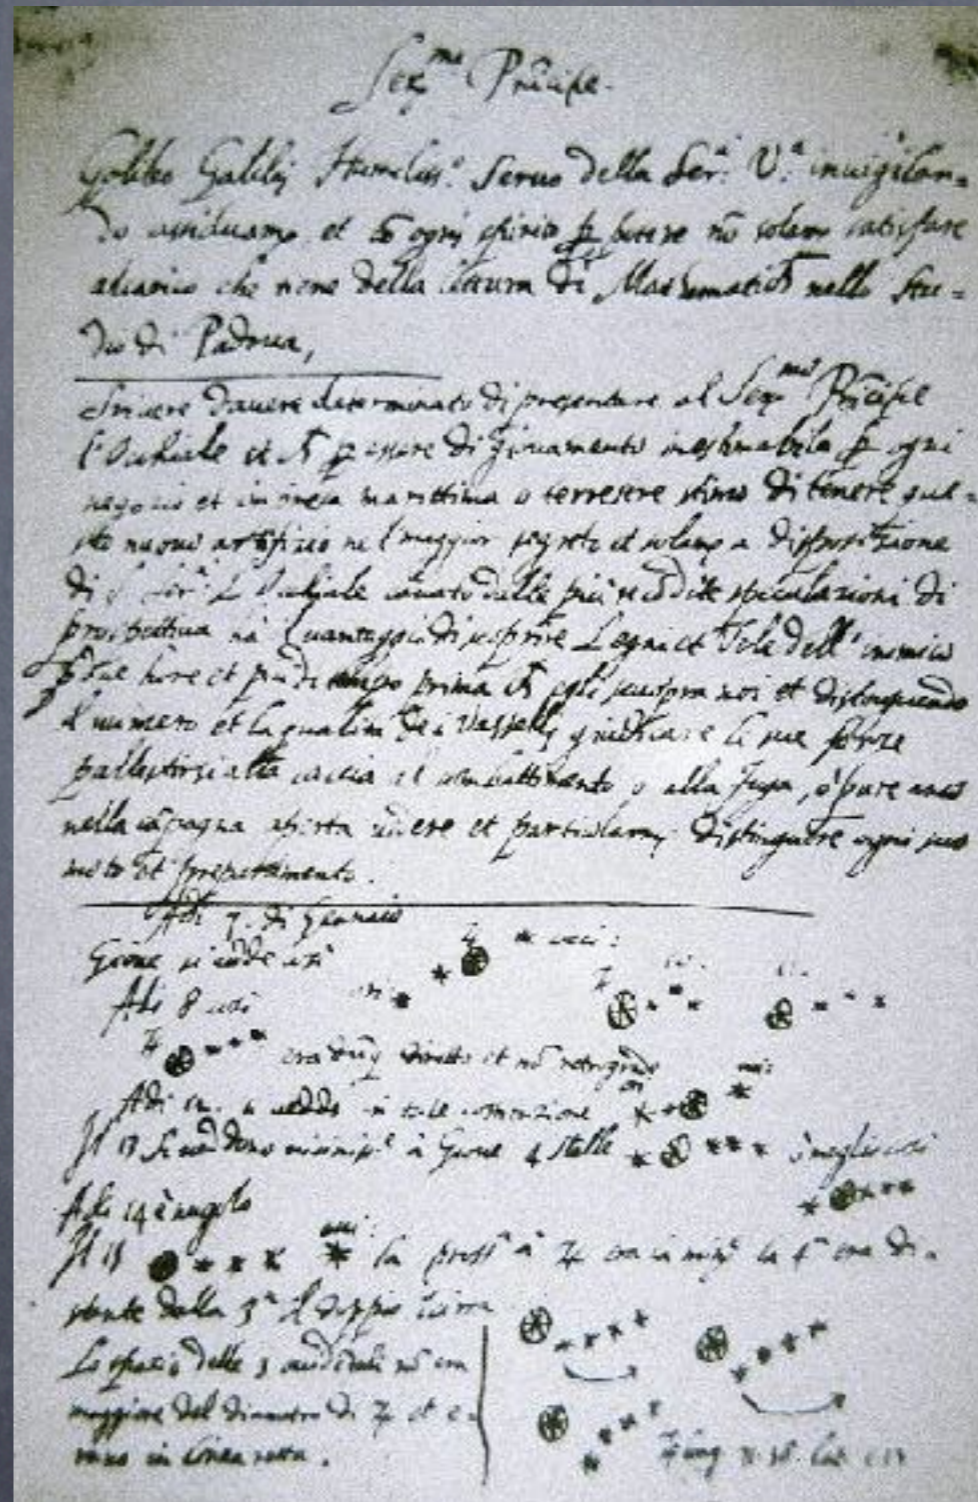 Ser.mo Principe.
Galileo Galilej Humiliss.o Servo della Ser.a V.a invigilan=
do assiduam.te et cō ogni spirito p potere nō solam.te satisfare
alcarico che tiene della lettura di Mathematica nello Stu=
dio di Padova,
Scrivere davere determinato di presentare al Ser.mo Principe
l'Occhiale et p essere di giovamento inestimabile p ogni
negozio et impresa marittima o terrestre stimo di tenere que=
sto nuovo artifizio nel maggior segreto et solam.te a disposizione
di S. Ser.a L'Occhiale cavato dalle più recōdite speculazioni di
prospettiva ha il vantaggio di scoprire Legni et Vele dell'inimico
p due hore et più di tempo prima ch egli scuopra noi et distinguendo
il numero et la qualità de i Vasselli giudicare le sue forze
pallestirsi alla caccia al combattimento o alla fuga, o pure anco
nella cāpagna aperta vedere et particolarm.te distinguere ogni suo
moto et preparamento.
Adi 7. di Gennaio
Giove si vede così
Adi 8 così
era dūq diretto et nō retrogrado
Adi 12. si vedde in tale costituzione
Il 13 si veddono vicinis.e a Giove 4 stelle è meglio così
Adi 14 è nugolo
Il 15 la pross.a a ♃ era la min.e la 4.a era di=
stante dalla 3.a il doppio
Lo spazio delle 3 occidentali nō era
maggiore del diametro di ♃ et e=
rano in linea retta.